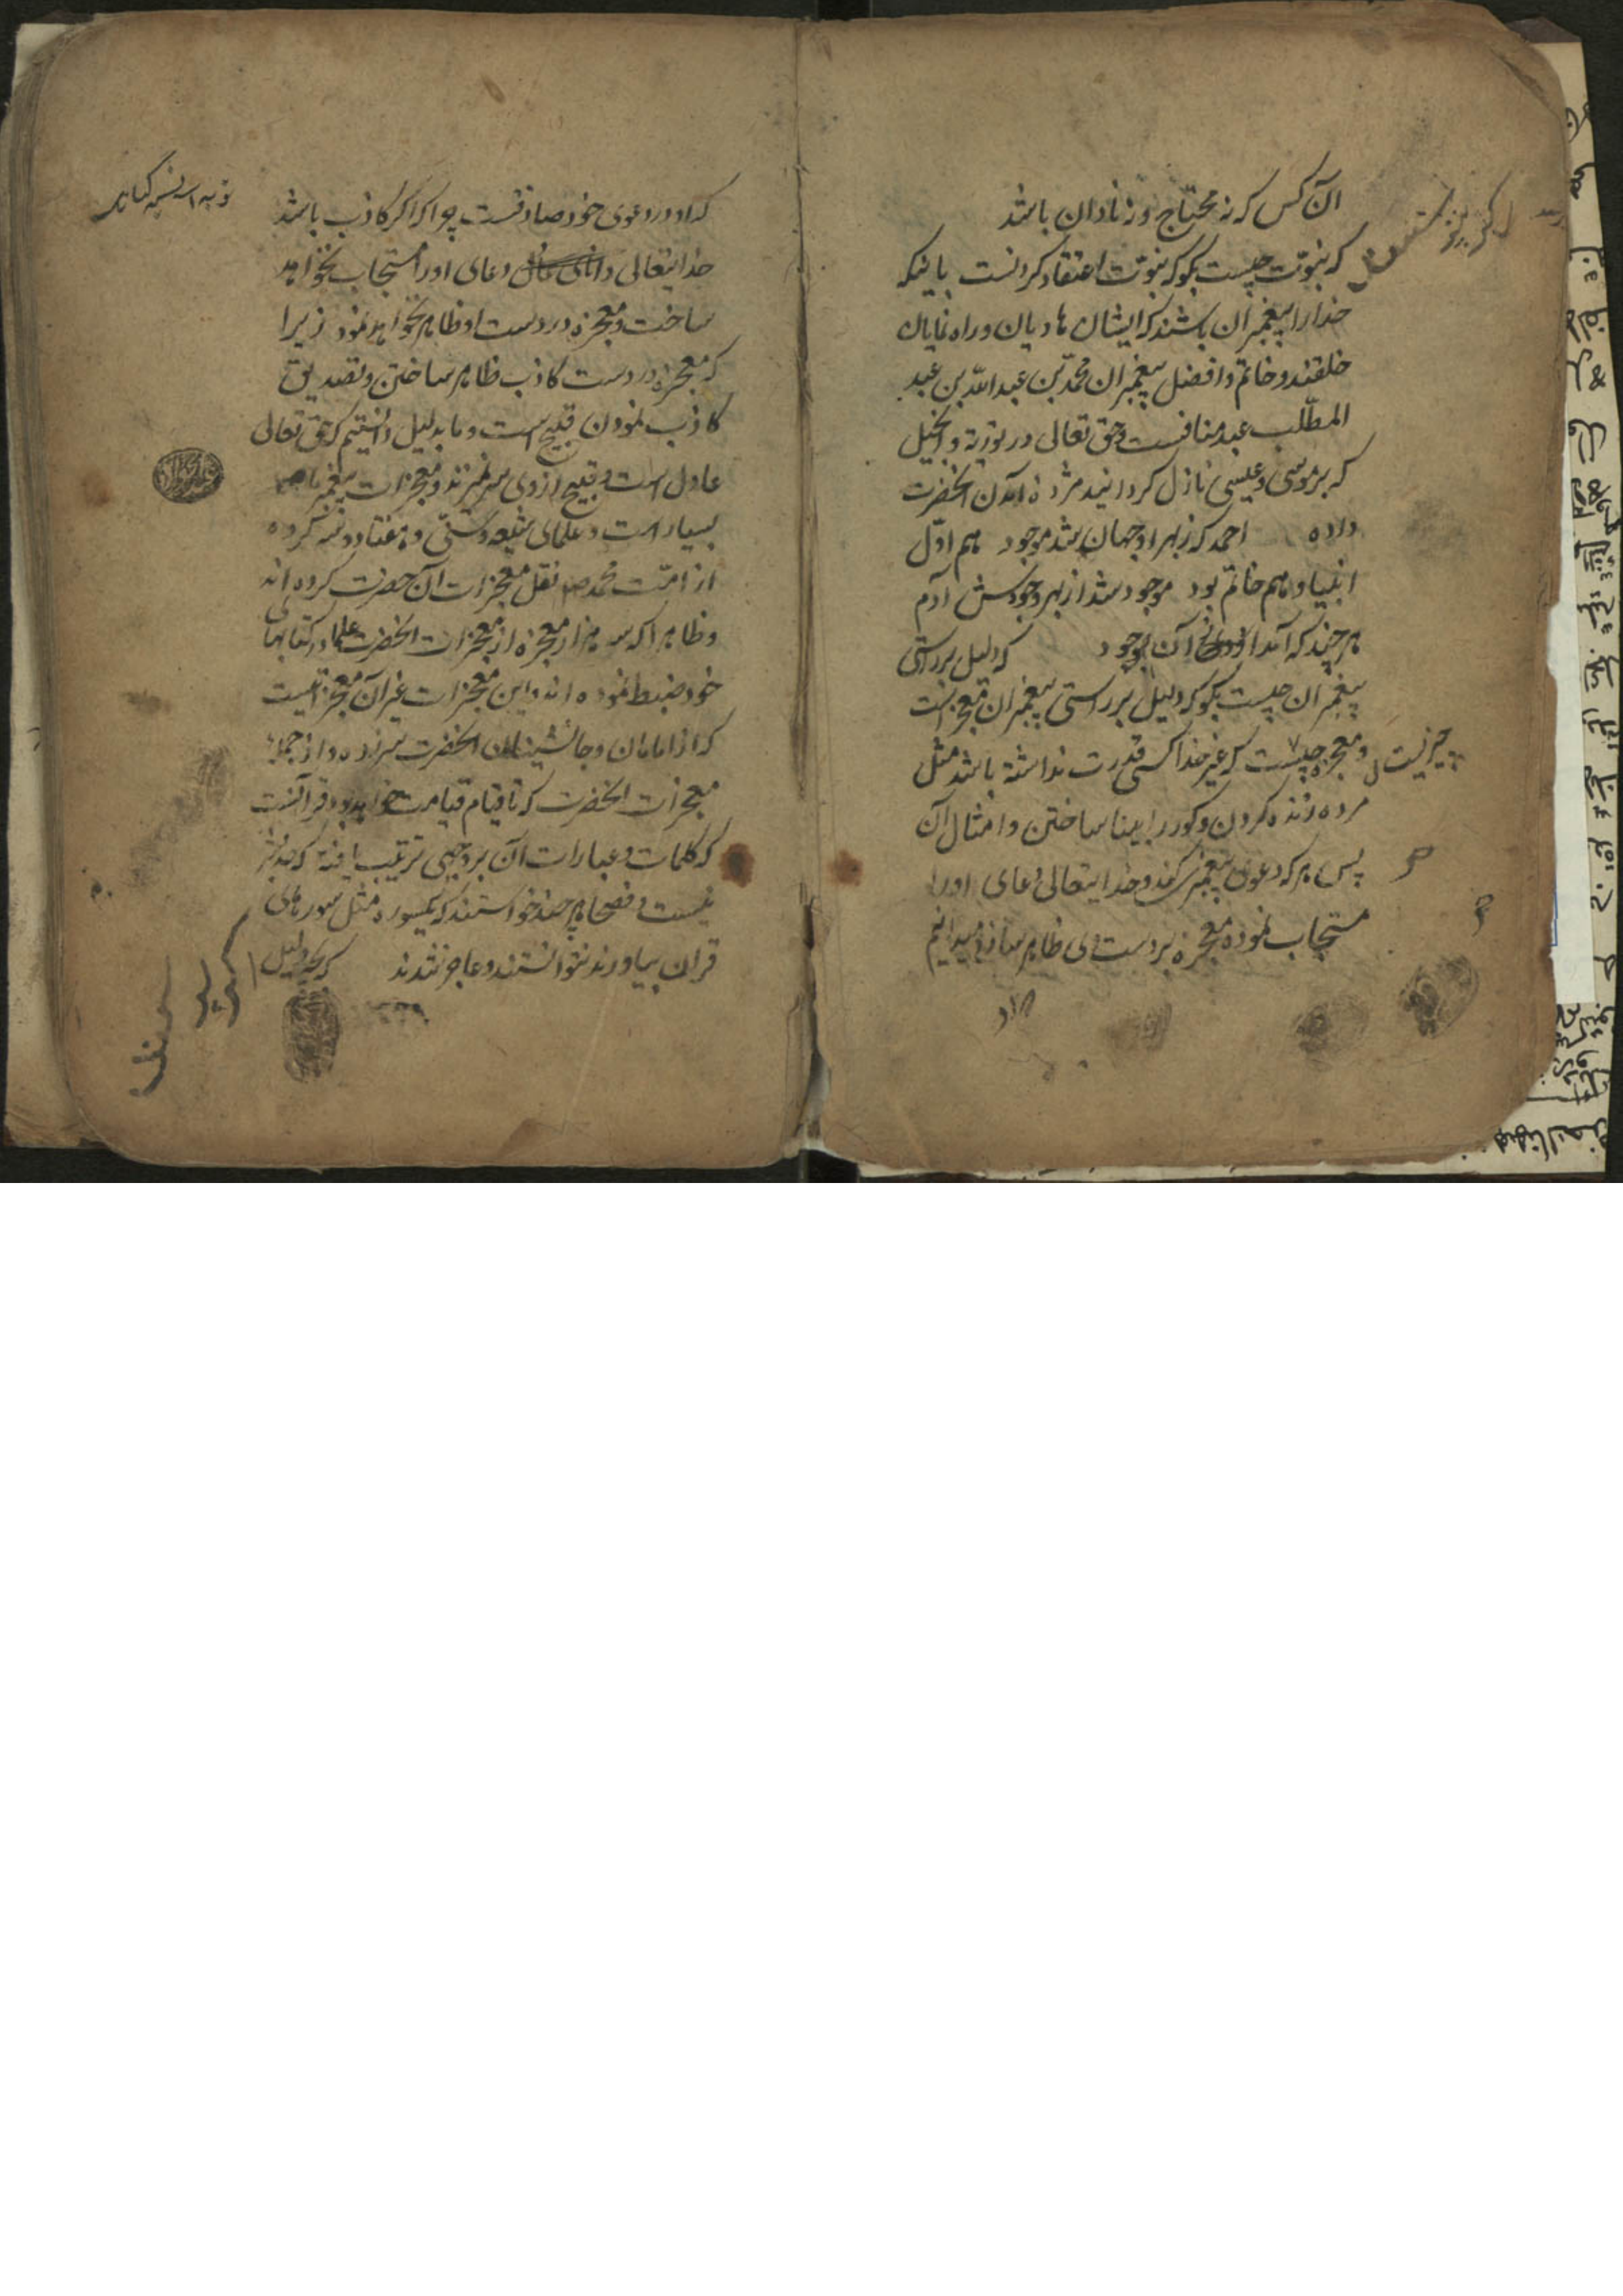 آن کس که نه محتاج و نه نادان باشد
که نبوّت چیست بگو که نبوّت اعتقاد کردنست باینکه
خدا را پیغمبران باشند که ایشان هادیان و راه نمایان
خلقند و خاتم و افضل پیغمبران محمّد بن عبد اللّه بن عبد
المطّلب عبد منافست و حق تعالی در توریة و انجیل
که بر موسی و عیسی نازل کردانید مژده آمدن آنحضرت
داده احمد که ز بهر او جهان شد موجود هم اوّل
انبیا و هم خاتم بود موجود شد از بهر وجودش آدم
هر چند که آمد آن بوجود که دلیل بر راستی
پیغمبران چیست بگو که دلیل بر راستی پیغمبران معجز است
و معجزه چیست که غیر خدا کسی قدرت نداشته باشد مثل
چیزیست
مرده زنده کردن و کور را بینا ساختن و امثال آن
پس هر که دعوی پیغمبری کند و خدایتعالی دعای او را
مستجاب نموده معجزه بر دست وی ظاهر سازد میدانیم
که او در دعوی خود صادقست چرا که اگر کاذب باشد
خدایتعالی دعای او را مستجاب نخواهد
ساخت و معجزه در دست او ظاهر نخواهد نمود زیرا
که معجزه در دست کاذب ظاهر ساختن و تصدیق
کاذب نمودن قبیح است و ما بدلیل دانستیم که حق تعالی
عادل است و قبیح از وی سر نمیزند و معجزات پیغمبر ما
بسیار است و علمای شیعه و سنّی و هفتاد و سه کروه
از امّت محمد نقل معجزات آن حضرت کرده اند
و ظاهرا که سه هزار معجزه از معجزات آنحضرت علما در کتابهای
خود ضبط نموده اند و این معجزات غیر آن معجزاتیست
که از امامان و جانشینان آنحضرت سر زده و از جمله
معجزات آنحضرت که تا قیام قیامت خواهد بود قرآنست
که کلمات و عبارات آن بر وجهی ترتیب یافته که حد بشر
نیست و فصحا هر چند خواستند که یکسوره مثل سوره های
قران بیاورند نتوانستند و عاجز شدند که بچه دلیل